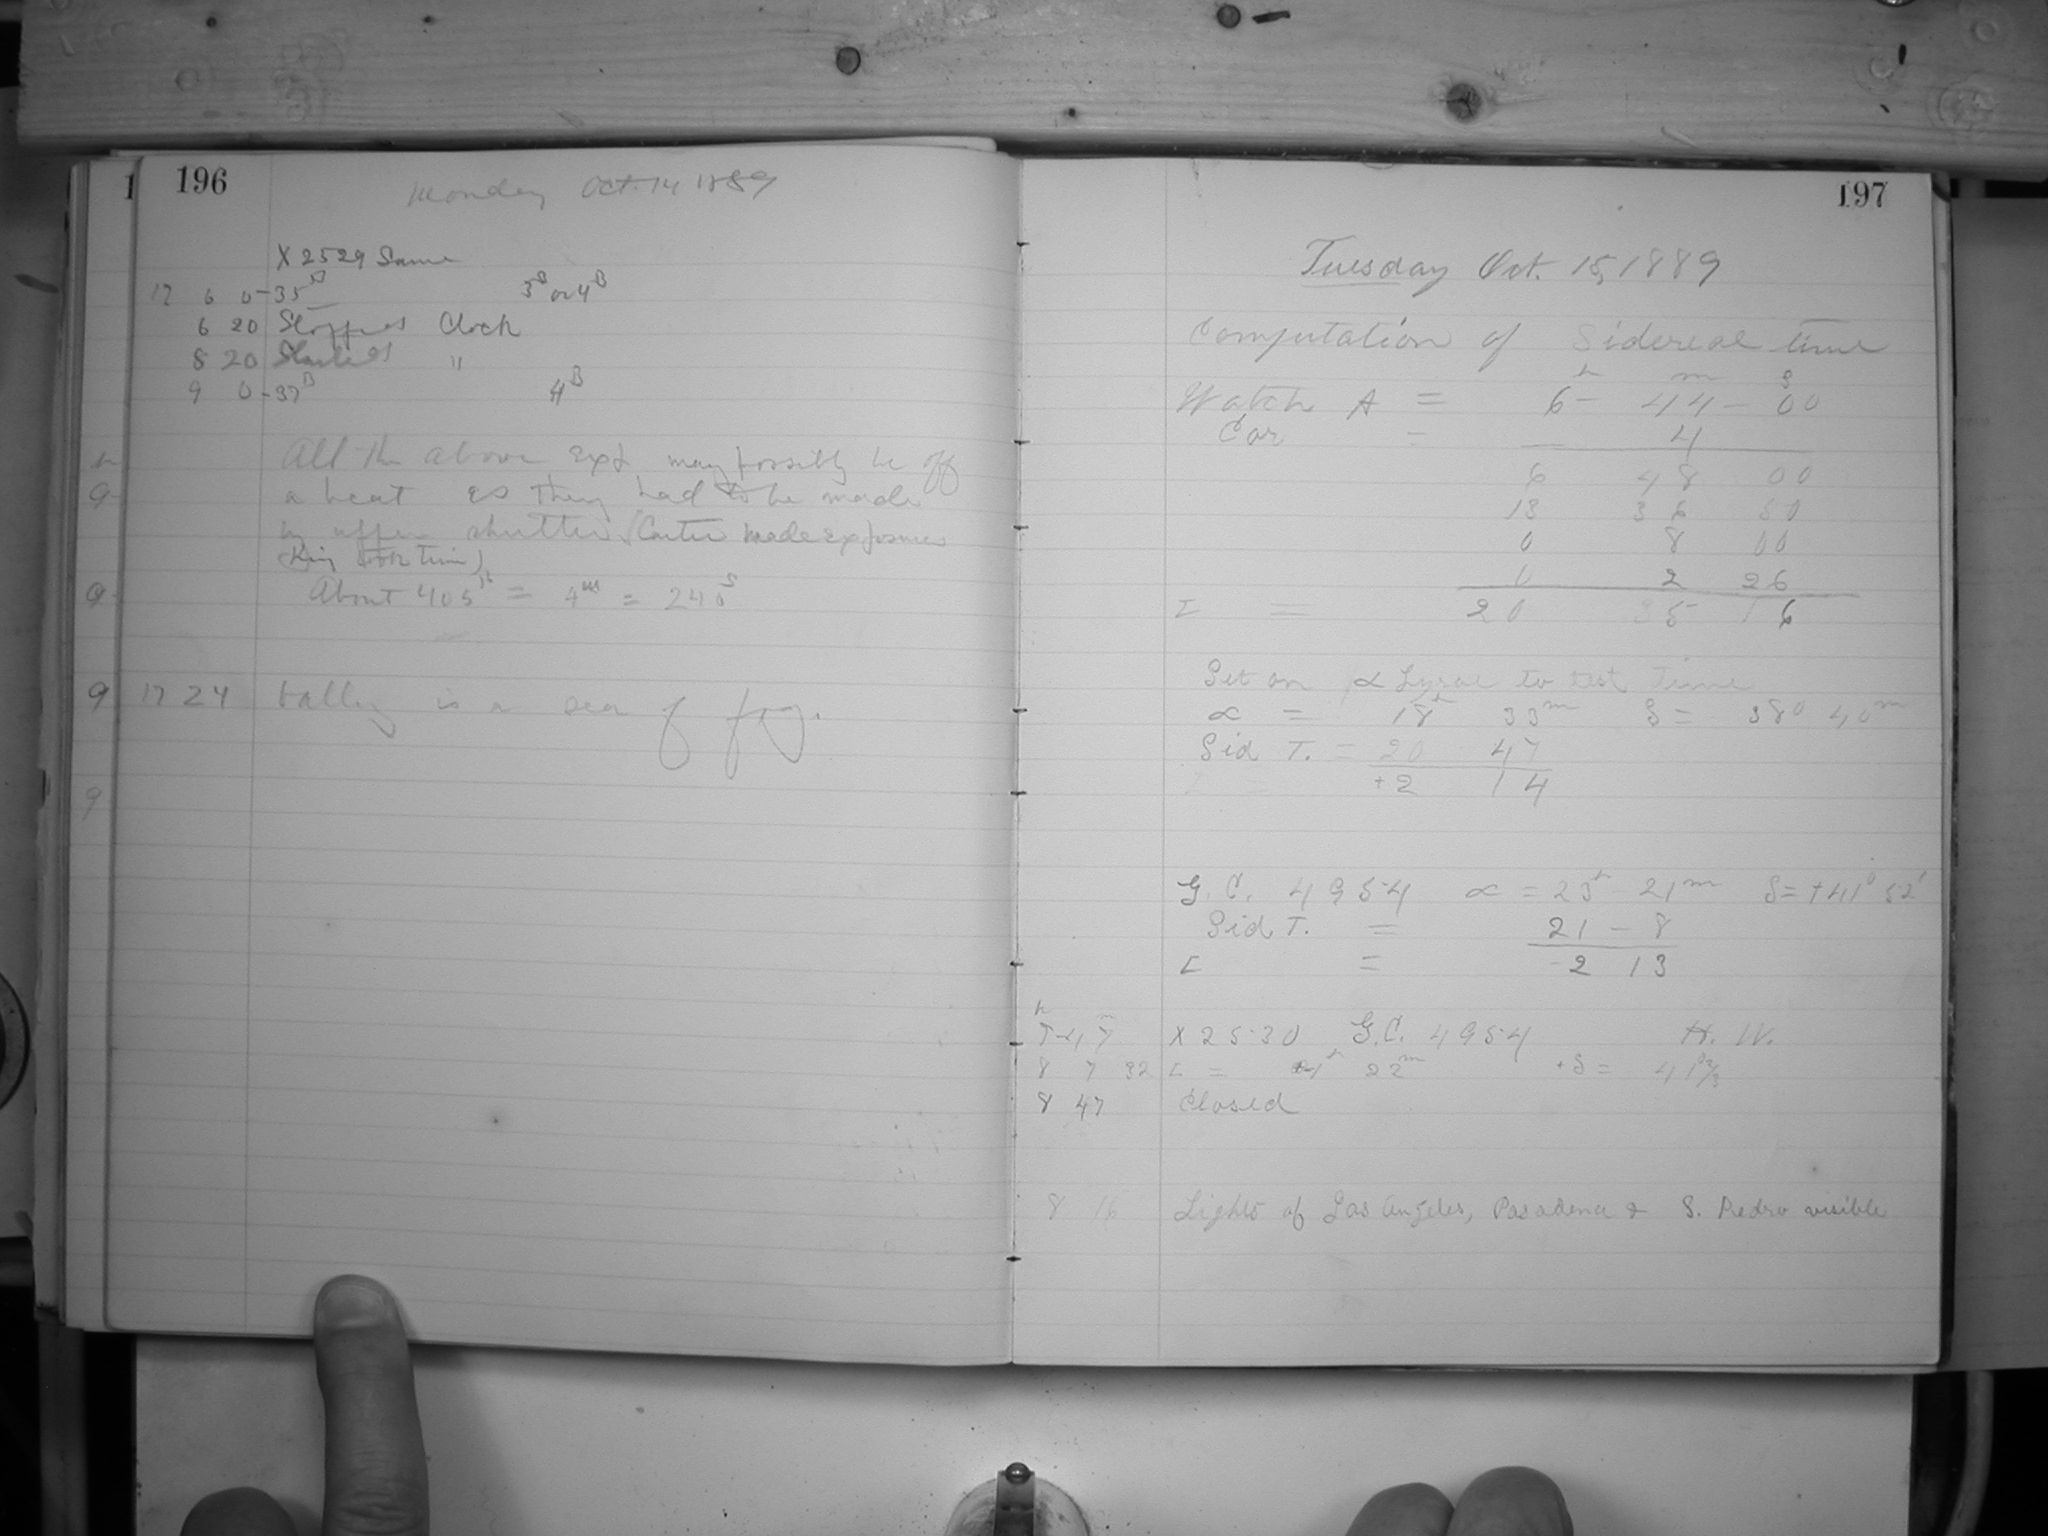 196
Monday Oct. 14 1889
X 2529 Same
17 6 0-35B 3B or 4B
6 20 Stopped Clock
8 20 Started "
9 0-37B 4B
All the above exp. may possibly be off
a beat as they had to be made
by upper shutter (Carter made exposures
King took time)
About 405 = 4m = 240s
17 24 Valley is a sea of fog.
197
Tuesday Oct. 15, 1889
Computation of Sidereal time
h m s
Watch A = 6 - 44 - 00
Cor = 4
6 48 00
13 36 50
0 8 00
0 2 26
= 20 35 16
Set on α Lyrae to test Time
α = 18h 33m δ = 38° 40m
Sid T. = 20 47
+2 14
G. C. 4954 α = 23h - 21m δ = +41° 52'
Sid T. = 21 - 8
= -2 13
h m
7 47 X 2530 G.C. 4954 H. W.
8 7 32 = 22m +δ = 41 2/3
8 47 Closed
8 16 Lights of Los Angeles, Pasadena & S. Pedro visible